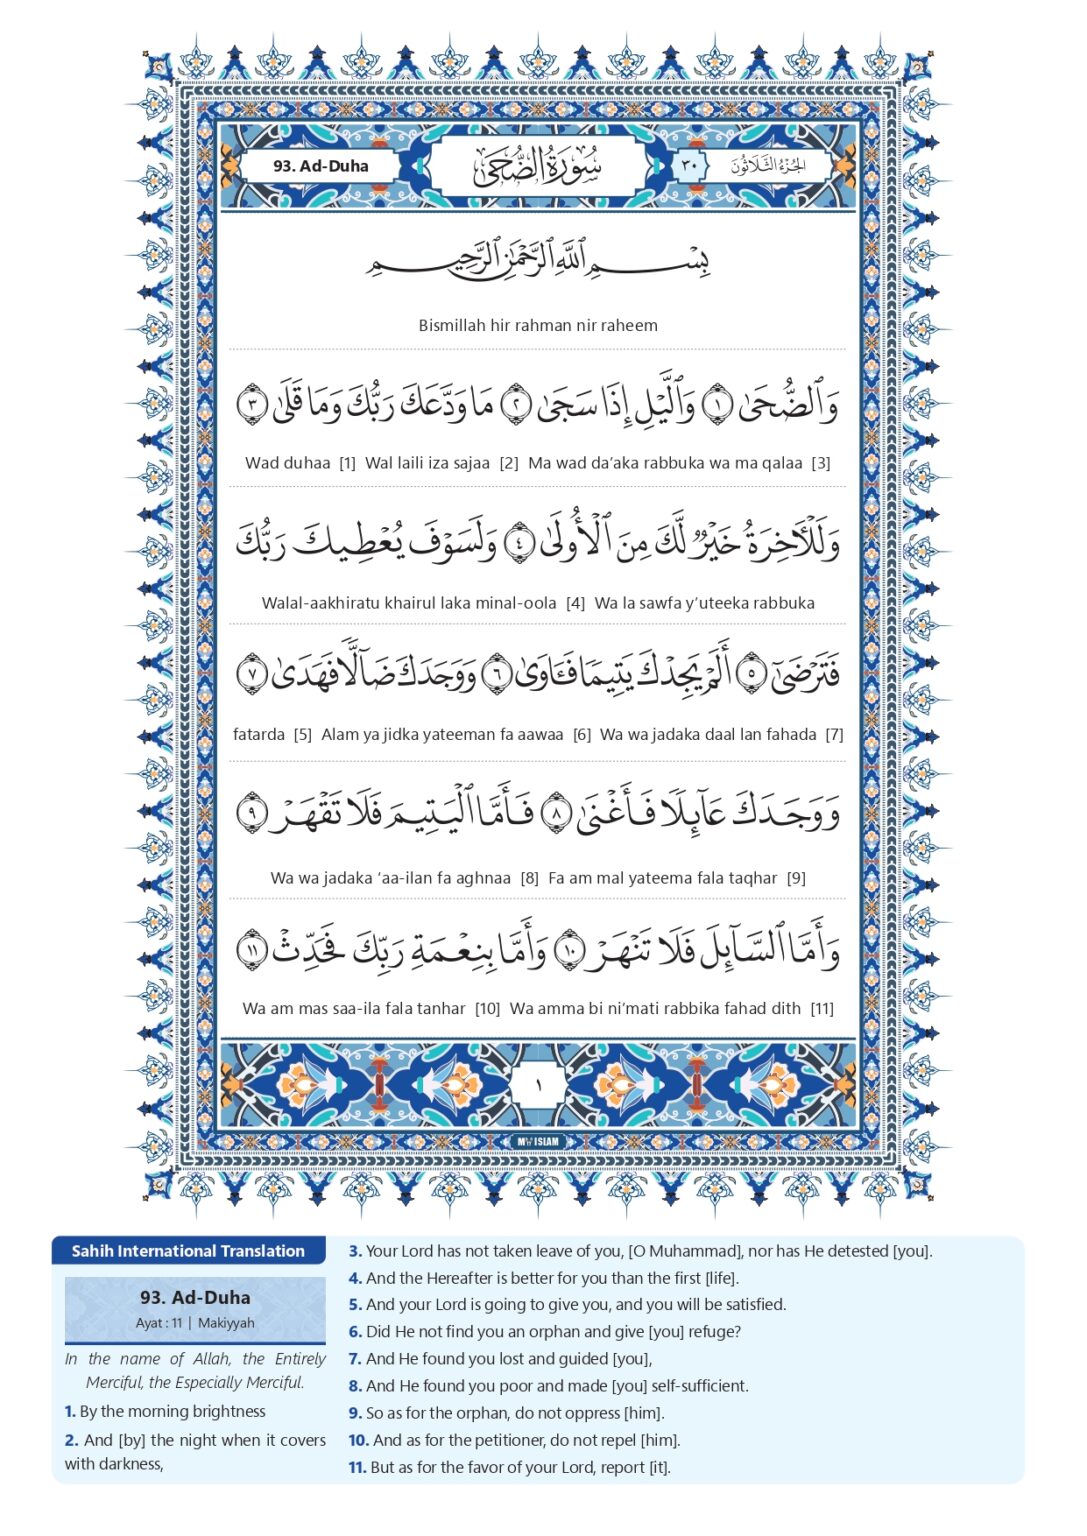 93. Ad-Duha
سُورَةُ الضُّحَىٰ
٣٠
الجُزْءُ الثَّلَاثُونَ
بِسْمِ ٱللَّهِ ٱلرَّحْمَٰنِ ٱلرَّحِيمِ
Bismillah hir rahman nir raheem
وَٱلضُّحَىٰ ١ وَٱلَّيْلِ إِذَا سَجَىٰ ٢ مَا وَدَّعَكَ رَبُّكَ وَمَا قَلَىٰ ٣
Wad duhaa [1] Wal laili iza sajaa [2] Ma wad da’aka rabbuka wa ma qalaa [3]
وَلَلْأَخِرَةُ خَيْرٌ لَّكَ مِنَ ٱلْأُولَىٰ ٤ وَلَسَوْفَ يُعْطِيكَ رَبُّكَ
Walal-aakhiratu khairul laka minal-oola [4] Wa la sawfa y’uteeka rabbuka
فَتَرْضَىٰٓ ٥ أَلَمْ يَجِدْكَ يَتِيمًا فَـَٔاوَىٰ ٦ وَوَجَدَكَ ضَآلًّا فَهَدَىٰ ٧
fatarda [5] Alam ya jidka yateeman fa aawaa [6] Wa wa jadaka daal lan fahada [7]
وَوَجَدَكَ عَآئِلًا فَأَغْنَىٰ ٨ فَأَمَّا ٱلْيَتِيمَ فَلَا تَقْهَرْ ٩
Wa wa jadaka ‘aa-ilan fa aghnaa [8] Fa am mal yateema fala taqhar [9]
وَأَمَّا ٱلسَّآئِلَ فَلَا تَنْهَرْ ١٠ وَأَمَّا بِنِعْمَةِ رَبِّكَ فَحَدِّثْ ١١
Wa am mas saa-ila fala tanhar [10] Wa amma bi ni’mati rabbika fahad dith [11]
١
MY ISLAM
Sahih International Translation
93. Ad-Duha
Ayat : 11 | Makiyyah
In the name of Allah, the Entirely
Merciful, the Especially Merciful.
1. By the morning brightness
2. And [by] the night when it covers
with darkness,
3. Your Lord has not taken leave of you, [O Muhammad], nor has He detested [you].
4. And the Hereafter is better for you than the first [life].
5. And your Lord is going to give you, and you will be satisfied.
6. Did He not find you an orphan and give [you] refuge?
7. And He found you lost and guided [you],
8. And He found you poor and made [you] self-sufficient.
9. So as for the orphan, do not oppress [him].
10. And as for the petitioner, do not repel [him].
11. But as for the favor of your Lord, report [it].